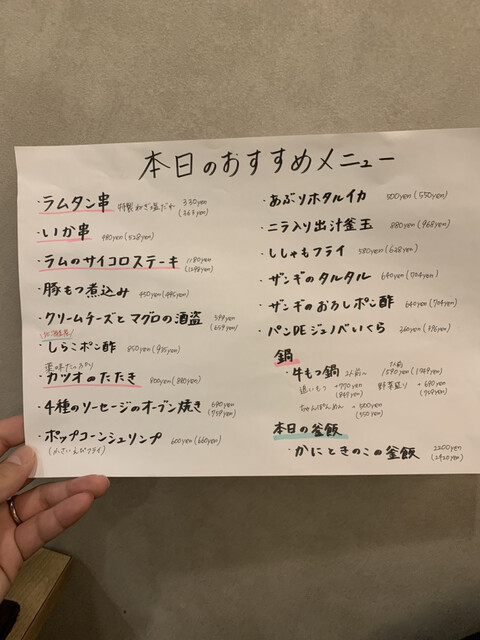 本日のおすすめメニュー
・ラムタン串 特製ねぎ塩だれ 330yen (363yen)
・いか串 480yen(528yen)
・ラムのサイコロステーキ 1180yen (1298yen)
・豚もつ煮込み 450yen(495yen)
・クリームチーズとマグロの酒盗 599yen (659yen)
・しらこポン酢 850yen(935yen)
薬味たっぷり
・カツオのたたき 800yen(880yen)
・4種のソーセージのオーブン焼き 690yen (759yen)
・ポップコーンシュリンプ 600yen(660yen)
・あぶりホタルイカ 500yen(550yen)
・ニラ入り出汁釜玉 880yen(968yen)
・ししゃもフライ 580yen(628yen)
・ザンギのタルタル 640yen(704yen)
・ザンギのおろしポン酢 640yen(704yen)
・パンDEジェノベいくら 360yen(396yen)
鍋
・牛もつ鍋 2人前〜 1人前 1590yen(1749yen)
追いもつ +770yen (847yen) 野菜盛り +690yen (759yen)
ちゃんぽんめん +500yen (550yen)
本日の釜飯
・かにときのこの釜飯 2200yen (2420yen)